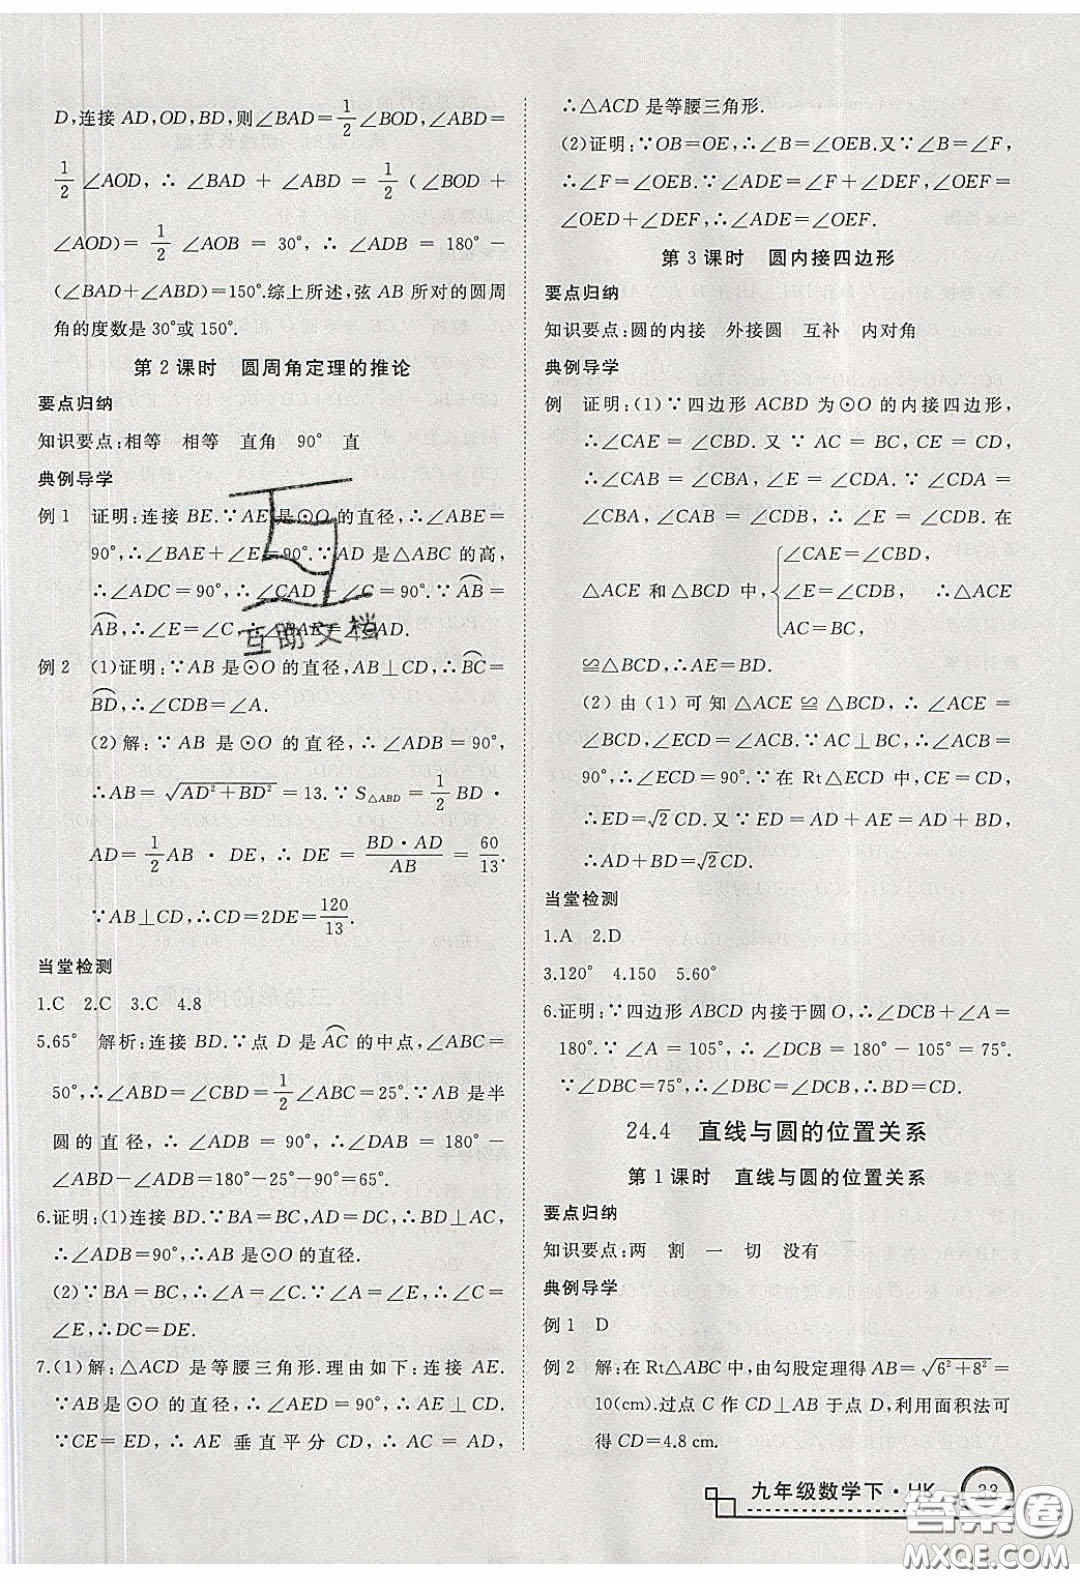 D,连接 AD,OD,BD,则∠BAD=1/2∠BOD,∠ABD=
1/2∠AOD,∴∠BAD+∠ABD=1/2(∠BOD+
∠AOD)=1/2∠AOB=30°,∴∠ADB=180°-
(∠BAD+∠ABD)=150°.综上所述,弦 AB 所对的圆周
角的度数是30°或150°.
第2课时 圆周角定理的推论
要点归纳
知识要点:相等 相等 直角 90° 直
典例导学
例1 证明:连接 BE.∵AE是⊙O的直径,∴∠ABE=
90°,∴∠BAE+∠E=90°.∵AD是△ABC的高,
∴∠ADC=90°,∴∠CAD+∠C=90°.∵⌒AB=
⌒AB,∴∠E=∠C,∴∠BAE=∠CAD.
例2 (1)证明:∵AB是⊙O的直径,AB⊥CD,∴⌒BC=
⌒BD,∴∠CDB=∠A.
(2)解:∵AB是⊙O的直径,∴∠ADB=90°,
∴AB=√(AD²+BD²)=13.∵S△ABD=1/2BD·
AD=1/2AB·DE,∴DE=BD·AD/AB=60/13.
∵AB⊥CD,∴CD=2DE=120/13.
当堂检测
1.C 2.C 3.C 4.8
5.65° 解析:连接 BD.∵点 D 是⌒AC的中点,∠ABC=
50°,∴∠ABD=∠CBD=1/2∠ABC=25°.∵AB是半
圆的直径,∴∠ADB=90°,∴∠DAB=180°-
∠ABD-∠ADB=180°-25°-90°=65°.
6.证明:(1)连接 BD.∵BA=BC,AD=DC,∴BD⊥AC,
∴∠ADB=90°,∴AB是⊙O的直径.
(2)∵BA=BC,∴∠A=∠C.∵∠A=∠E,∴∠C=
∠E,∴DC=DE.
7.(1)解:△ACD是等腰三角形.理由如下:连接 AE.
∵AD是⊙O的直径,∴∠AED=90°,∴AE⊥CD.
∵CE=ED,∴AE垂直平分CD,∴AC=AD,
∴△ACD是等腰三角形.
(2)证明:∵OB=OE,∴∠B=∠OEB.又∵∠B=∠F,
∴∠F=∠OEB.∵∠ADE=∠F+∠DEF,∠OEF=
∠OED+∠DEF,∴∠ADE=∠OEF.
第3课时 圆内接四边形
要点归纳
知识要点:圆的内接 外接圆 互补 内对角
典例导学
例 证明:(1)∵四边形 ACBD 为⊙O的内接四边形,
∴∠CAE=∠CBD.又∵AC=BC,CE=CD,
∴∠CAB=∠CBA,∠E=∠CDA.∵∠CDA=
∠CBA,∠CAB=∠CDB,∴∠E=∠CDB.在
△ACE和△BCD中,{∠CAE=∠CBD,
∠E=∠CDB,∴△ACE
AC=BC,
≌△BCD,∴AE=BD.
(2)由(1)可知△ACE≌△BCD,∴∠ACE=
∠BCD,∠ECD=∠ACB.∵AC⊥BC,∴∠ACB=
90°,∴∠ECD=90°.∵在Rt△ECD中,CE=CD,
∴ED=√2CD.又∵ED=AD+AE=AD+BD,
∴AD+BD=√2CD.
当堂检测
1.A 2.D
3.120° 4.150 5.60°
6.证明:∵四边形 ABCD 内接于圆O,∴∠DCB+∠A=
180°.∵∠A=105°,∴∠DCB=180°-105°=75°.
∵∠DBC=75°,∴∠DBC=∠DCB,∴BD=CD.
24.4 直线与圆的位置关系
第1课时 直线与圆的位置关系
要点归纳
知识要点:两 割 一 切 没有
典例导学
例1 D
例2 解:在Rt△ABC中,由勾股定理得AB=√(6²+8²)=
10(cm).过点 C 作CD⊥AB于点 D,利用面积法可
得CD=4.8 cm.
九年级数学下·HK 23
互助文档
答案圈
MXQE.COM